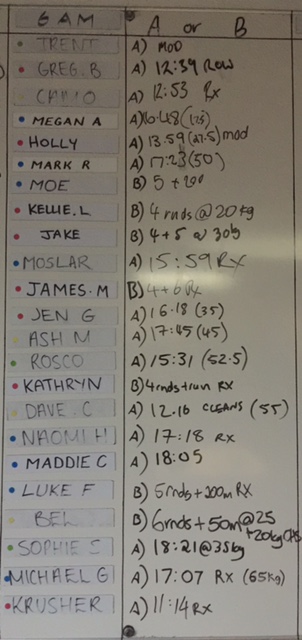 6 AM A or B
TRENT A) MOD
GREG.B A) 12:39 Row
A) 12:53 Rx
MEGAN A A) 16.48 (175)
HOLLY A) 13.59 (27.5) mod
MARK R A) 17:23 (50)
MOE B) 5 + 200
KELLIE.L B) 4 rnds @ 20kg
JAKE B) 4 + 5 @ 30kg
MOSLAR A) 15:59 RX
JAMES.M B) 4 + 6 Rx
JEN G A) 16.18 (35)
ASH M A) 17:45 (45)
ROSCO A) 15:31 (52.5)
KATHRYN B) 4rnds + run RX
DAVE.C A) 12.16 CLEANS (55)
NAOMI H A) 17:18 RX
MADDIE C A) 18:05
LUKE F B) 5rnds + 200m RX
BEL B) 6rnds + 50m @25
+20kg
SOPHIE S A) 18:21 @ 35kg
MICHAEL G A) 17:07 RX (65kg)
KRUSHER A) 11:14 RX